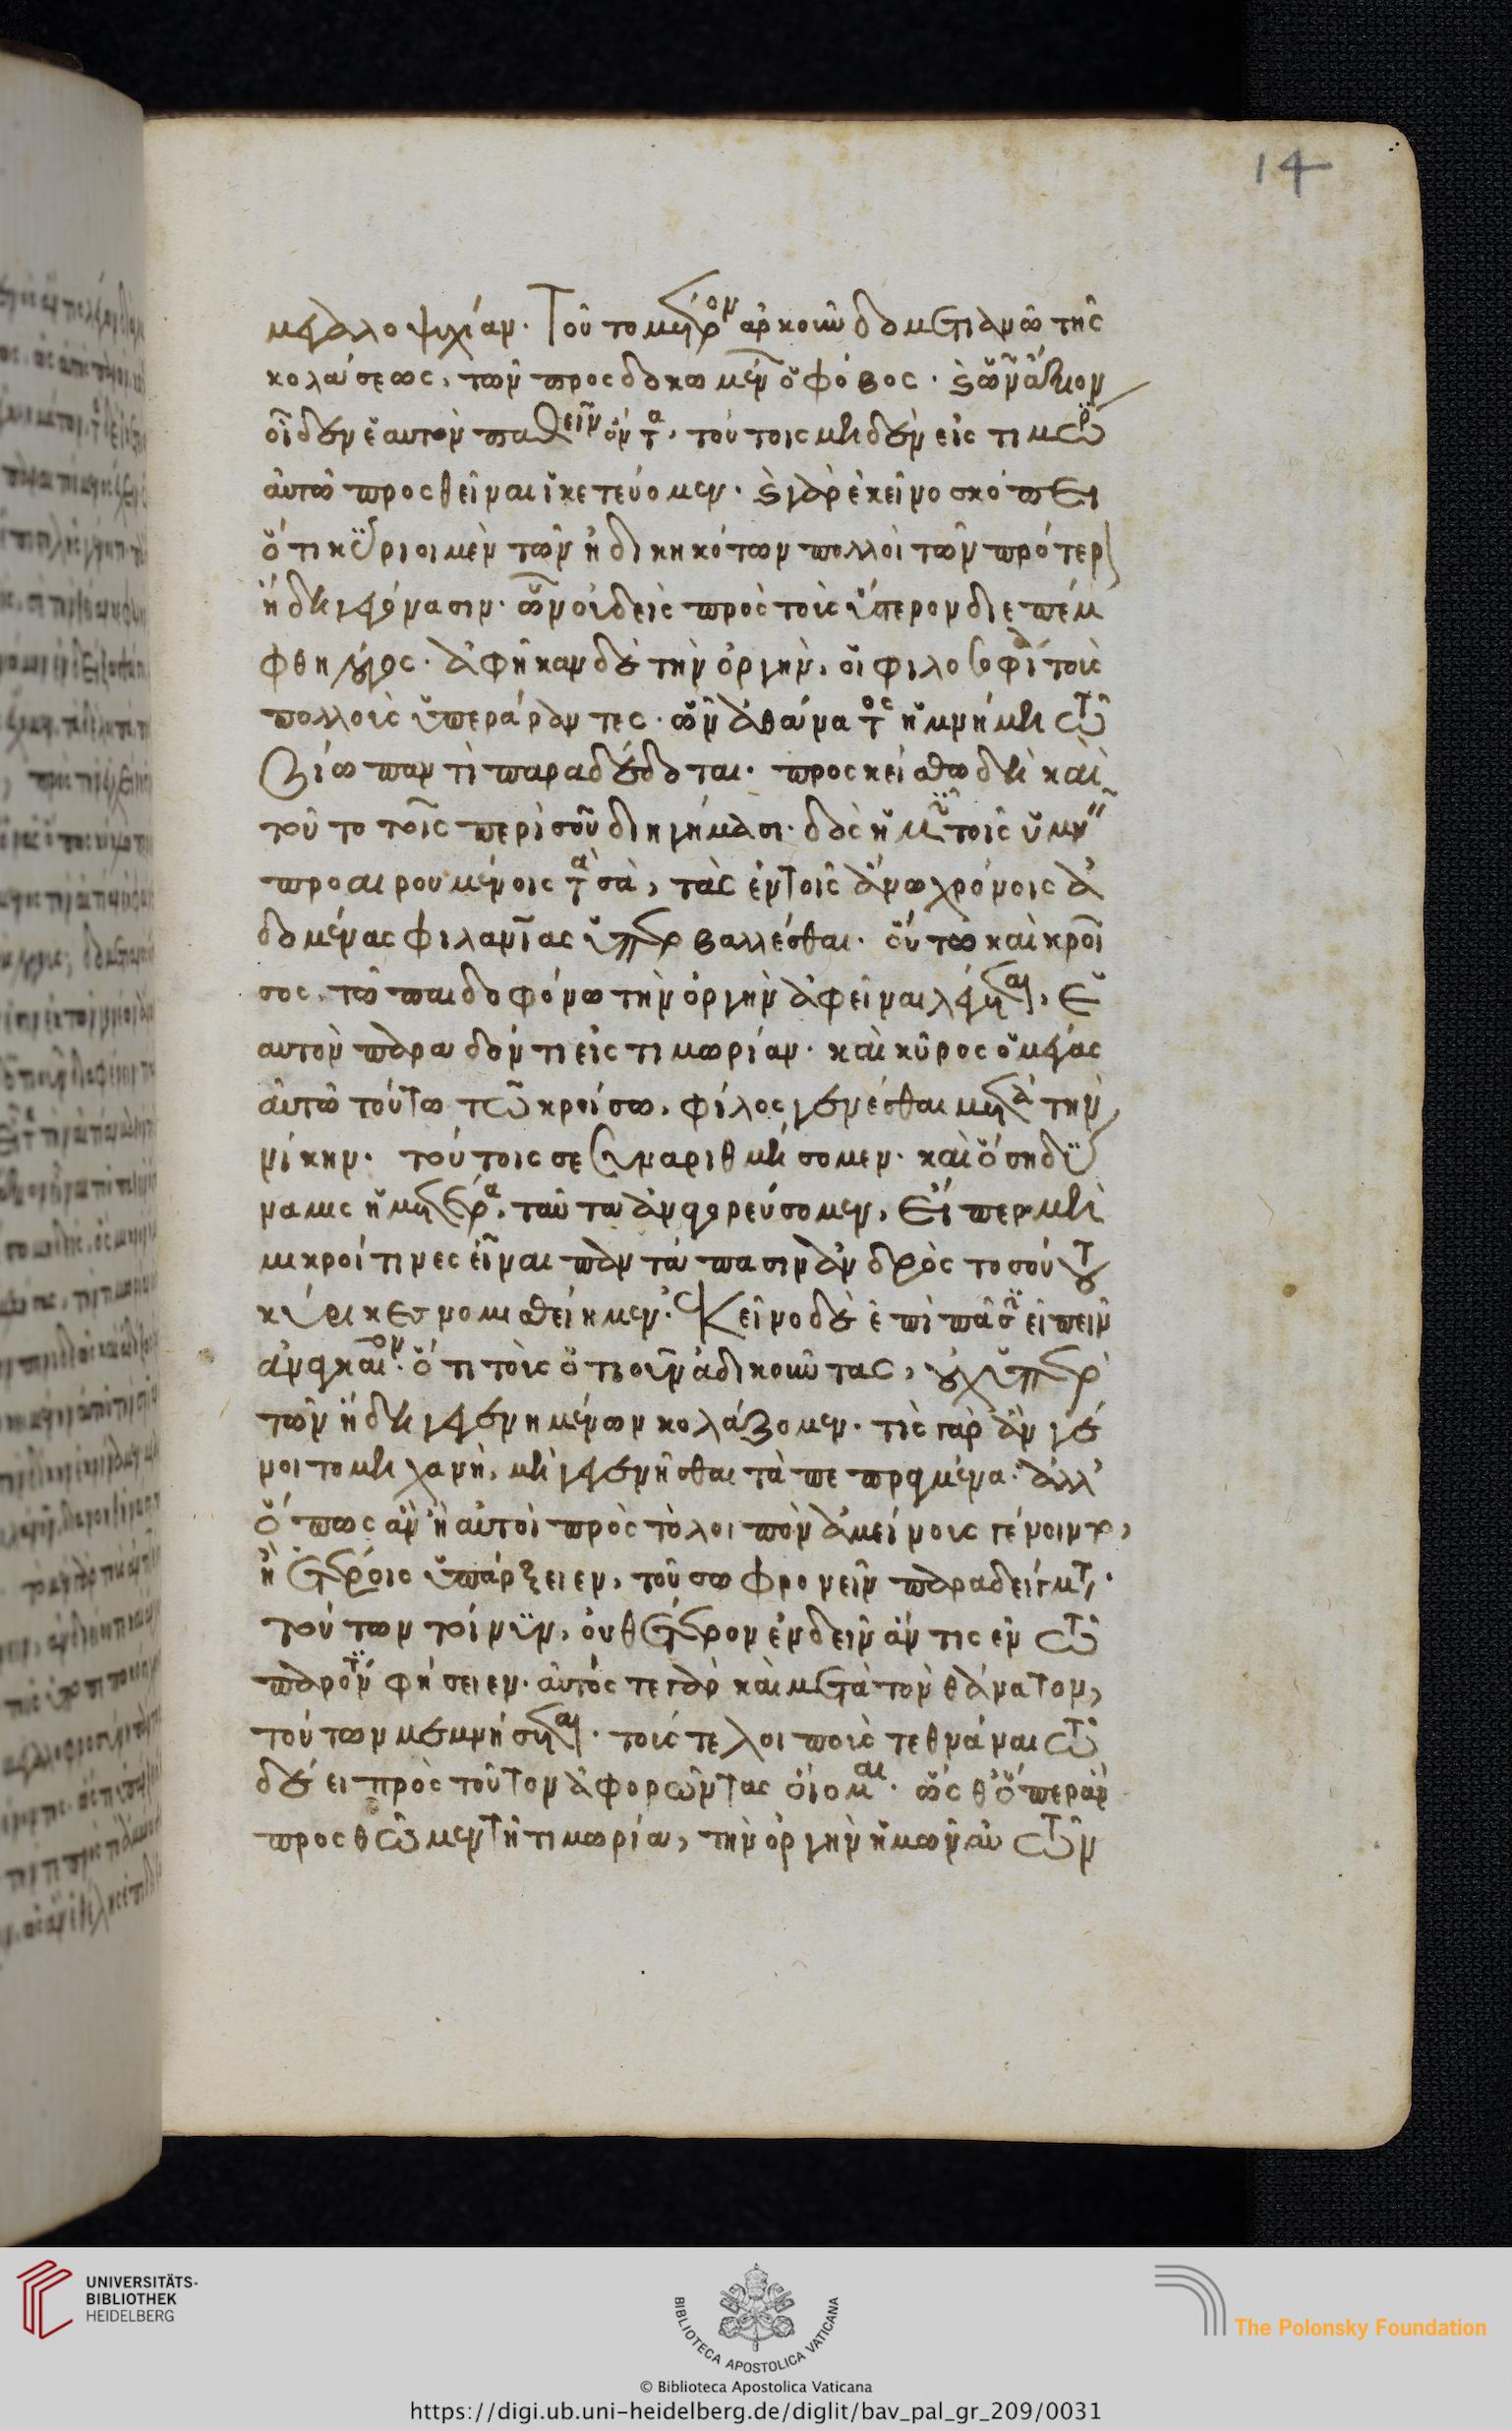 14
μεγαλοψυχίαν. Τούτο μέτριον ἀρκοῦν δὸς μετιέναι τῆς
κολάσεως, τῶν προσδοκωμένων ὁ φόβος. καὶ ὧν ἄξιον
οἶδεν ἑαυτὸν παθεῖν ὄντα, τούτοις μηδὲν εἰς τιμωρ
αὐτῶ προσθεῖναι ἱκετεύομεν. καὶ γὰρ ἐκεῖνο σκόπει
ὅτι κύριοι μὲν τῶν ἠδικηκότων πολλοὶ τῶν πρότερ
ἤδη γεγόνασιν. ὧν οὐδεὶς πρὸς τοὺς ὕστερον διεπέμ
φθη λόγος. ἀφῆκαν δὲ τὴν ὀργὴν, οἱ φιλοσοφία τοὺς
πολλοὺς ὑπεράραντες. ὧν ἀθάνατος ἡ μνήμη τῶ
βίω παντὶ παραδέδοται. προσκείσθω δὴ καὶ
τοῦτο τοῖς περὶ σοῦ διηγήμασι. δὸς ἡμῖν τοῖς ὑμνεῖν
προαιρουμένοις τὰ σὰ, τὰς ἐν τοῖς ἄνω χρόνοις ἀ
δομένας φιλανίας ὑπερβαλλέσθαι. οὕτω καὶ κροῖ
σος, τῶ παιδοφόνω τὴν ὀργὴν ἀφεῖναι λέγεται, ἑ
αυτὸν παραδόντι εἰς τιμωρίαν. καὶ κῦρος ὁ μέγας
αὐτῶ τούτω τῶ κροίσω, φίλος γενέσθαι μετὰ τὴν
νίκην. τούτοις σε συναριθμήσομεν. καὶ ὅση δύ
ναμις ἡμετέρα, ταῦτα ἀναγορεύσομεν, εἴπερ μὴ
μικροί τινες εἶναι παντάπασιν ἀνδρὸς τοσούτου
κήρυκες νομισθείημεν. Κεῖνο δὲ ἐπὶ πᾶσιν εἰπεῖν
ἀναγκαῖον. ὅτι τοὺς ὁτιοῦν ἀδικοῦντας, οὐχ ὑπὲρ
τῶν ἤδη γεγενημένων κολάζομεν. τίς γὰρ ἂν γέ
νοιτο μηχανὴ, μὴ γεγενῆσθαι τὰ πεπραγμένα. ἀλλ'
ὅπως ἂν ἢ αὐτοὶ πρὸς τὸ λοιπὸν ἀμείνους γένοιντο,
ἢ ἑτέροις ὑπάρξειεν, τοῦ σωφρονεῖν παράδειγμα.
τούτων τοίνυν, οὐθέτερον ἐνδεῖν ἄν τις ἐν τῶ
παρόντι φήσειεν. αὐτός τε γὰρ καὶ μετὰ τὸν θάνατον,
τούτων μεμνήσεται. τούς τε λοιποὺς τεθνάναι τῶ
δέει πρὸς τοῦτον ἀφορῶντας οἴομαι. ὥσθ' ὅπερ ἂν
προσθῶμεν τῆ τιμωρία, τὴν ὀργὴν ἡμῶν αὐτῶν
UNIVERSITÄTS-
BIBLIOTHEK
HEIDELBERG
BIBLIOTECA APOSTOLICA VATICANA
The Polonsky Foundation
© Biblioteca Apostolica Vaticana
https://digi.ub.uni-heidelberg.de/diglit/bav_pal_gr_209/0031